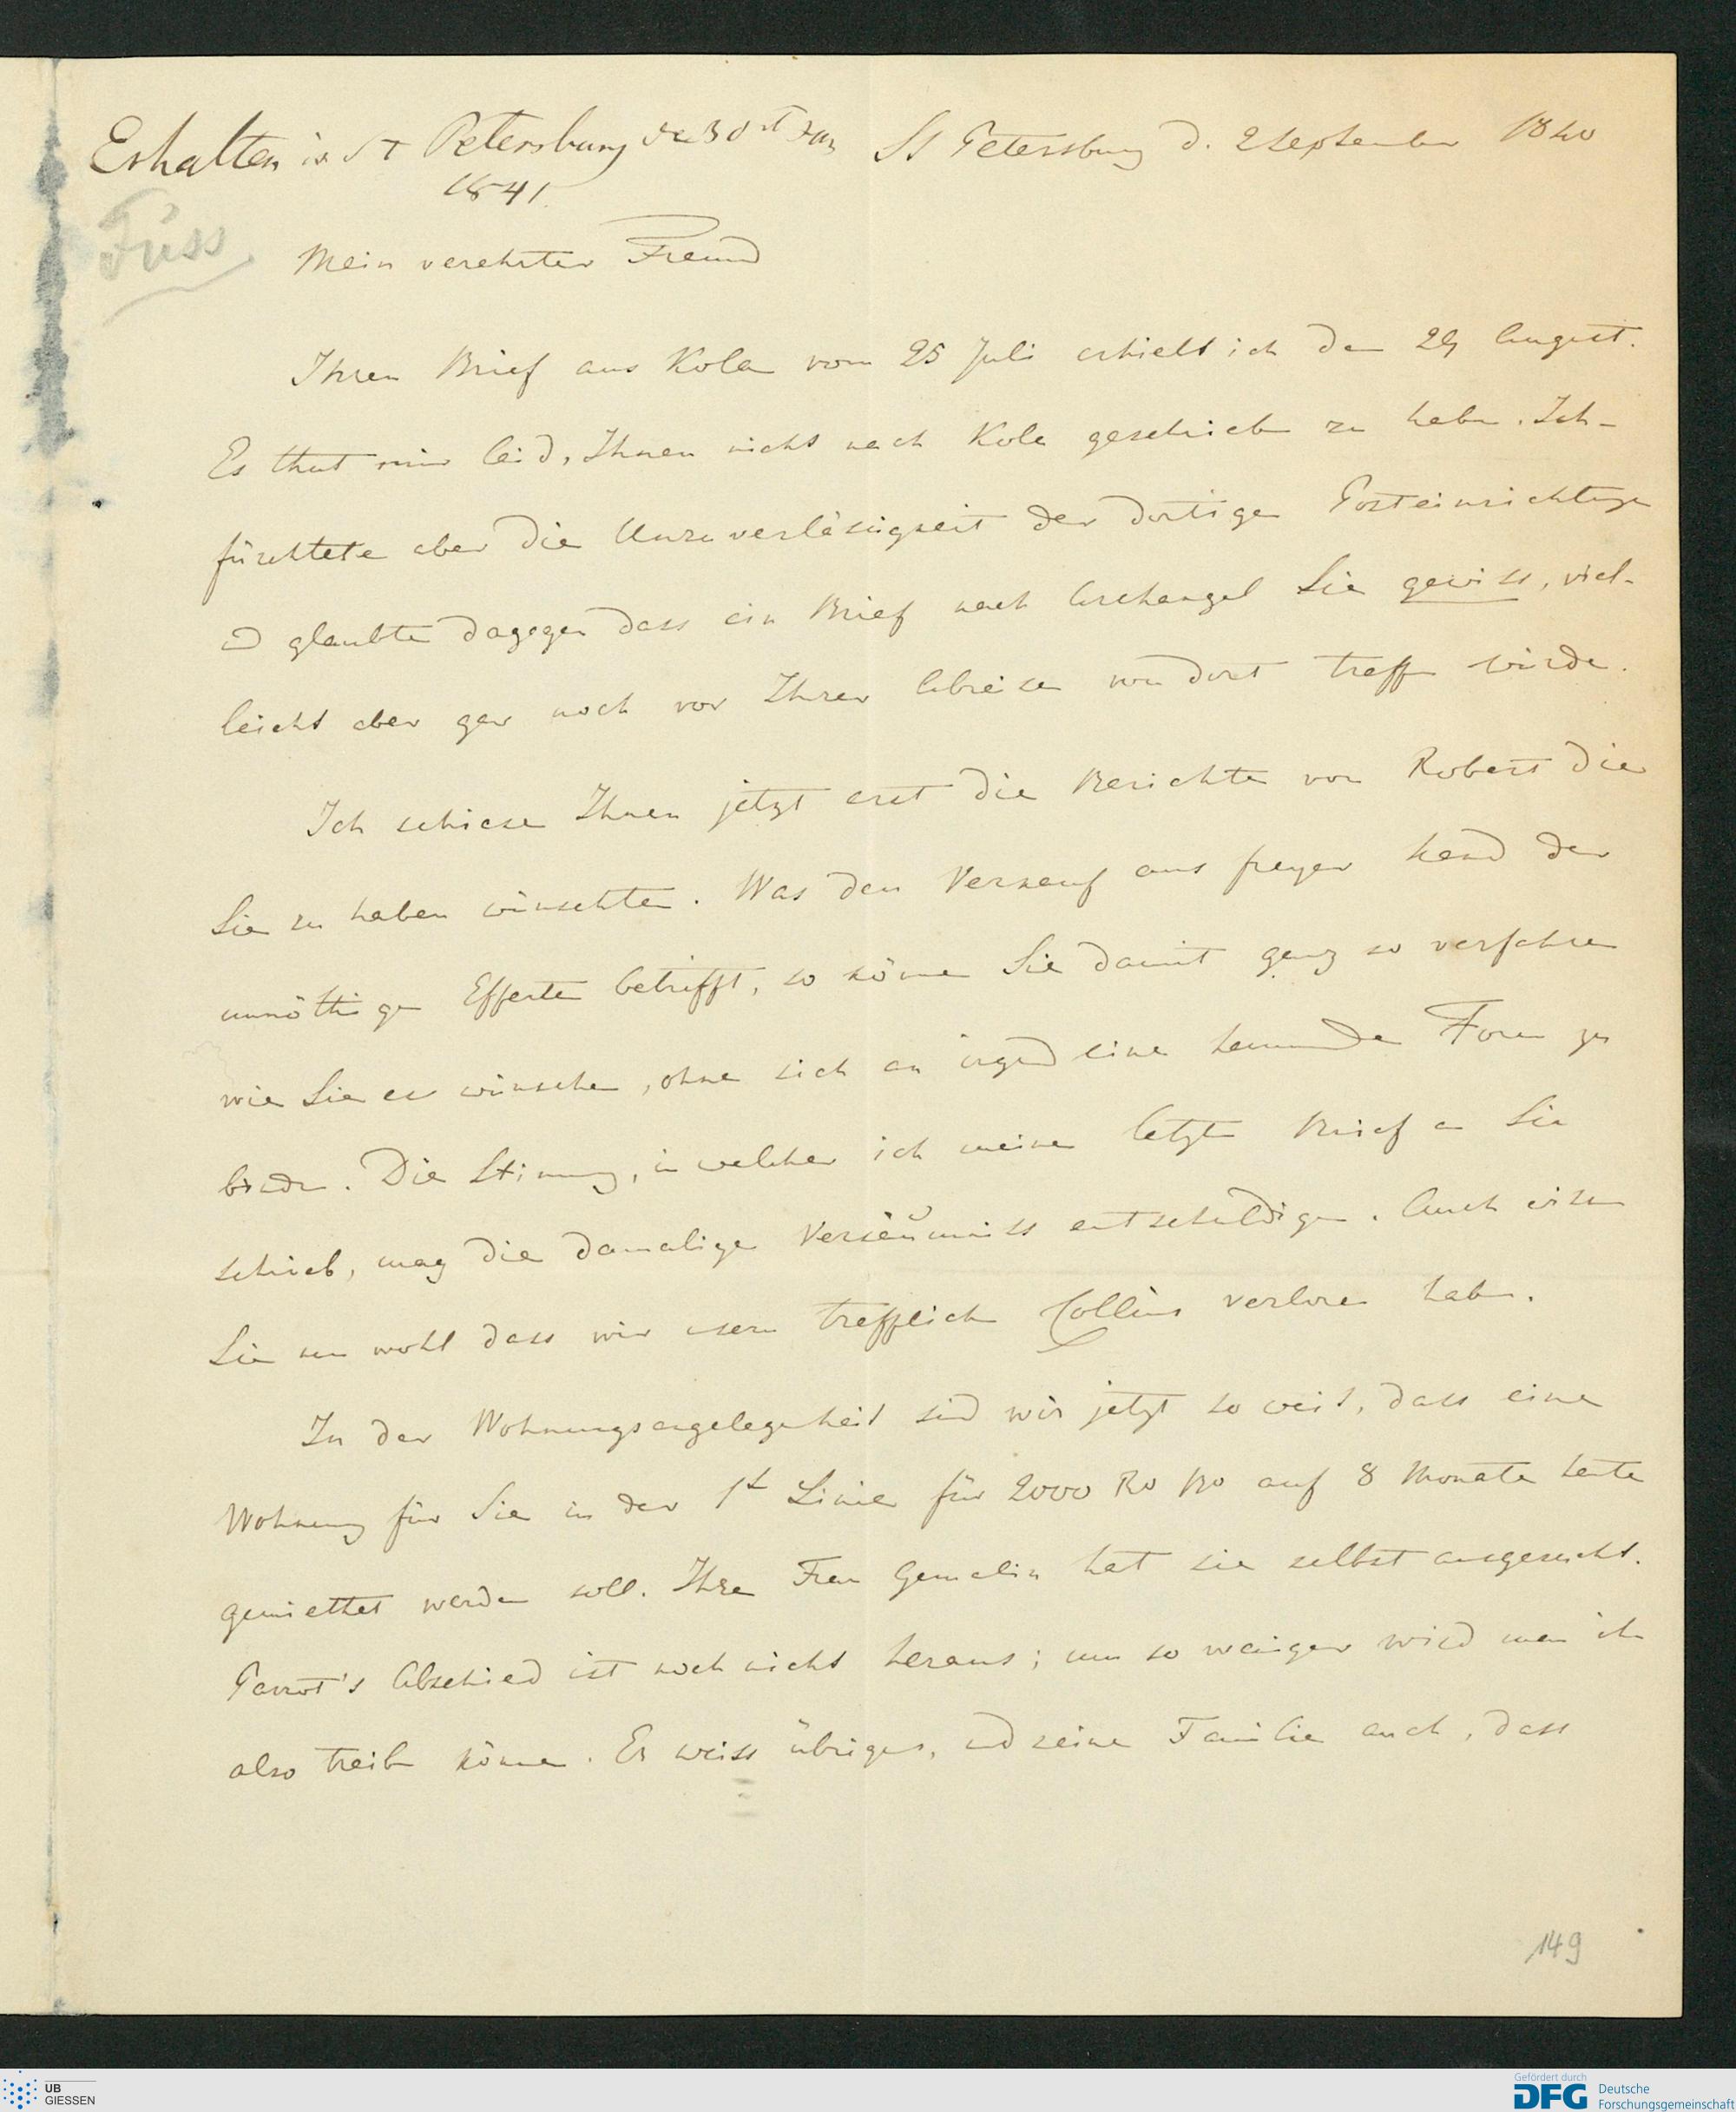 Erhalten in St Petersburg den 30st Jan
1841.
St Petersburg d. 2 September 1840
Fuss
Mein verehrter Freund
Ihren Brief aus Kola vom 25 Juli erhielt ich den 29 August.
Es thut mir leid, Ihnen nicht nach Kola geschrieben zu haben. Ich
fürchtete aber die Unzuverlässigkeit der dortigen Posteinrichtungen
und glaubte dagegen dass ein Brief nach Archangel Sie gewiss, viel-
leicht aber gar noch vor Ihrer Abreise von dort treffen würde.
Ich schicke Ihnen jetzt erst die Berichte von Robert die
Sie zu haben wünschten. Was den Verkauf aus freyer Hand der
unnöthigen Effecten betrifft, so können Sie damit ganz so verfahren
wie Sie es wünschen, ohne sich an irgend eine hemmende Form zu
binden. Die Stimmung, in welcher ich meinen letzten Brief an Sie
schrieb, mag die damalige Versäumniss entschuldigen. Auch wissen
Sie nun wohl dass wir unsern trefflichen Collins verloren haben.
In der Wohnungsangelegenheit sind wir jetzt so weit, dass eine
Wohnung für Sie in der 1t Linie für 2000 Ro Bo auf 8 Monate heute
gemiethet werden soll. Ihre Frau Gemalin hat sie selbst ausgesucht.
Parrot's Abschied ist noch nicht heraus; um so weniger wird man ihn
also treiben können. Er weiss übrigens, und seine Familie auch, dass
149
UB
GIESSEN
Gefördert durch
DFG Deutsche
Forschungsgemeinschaft